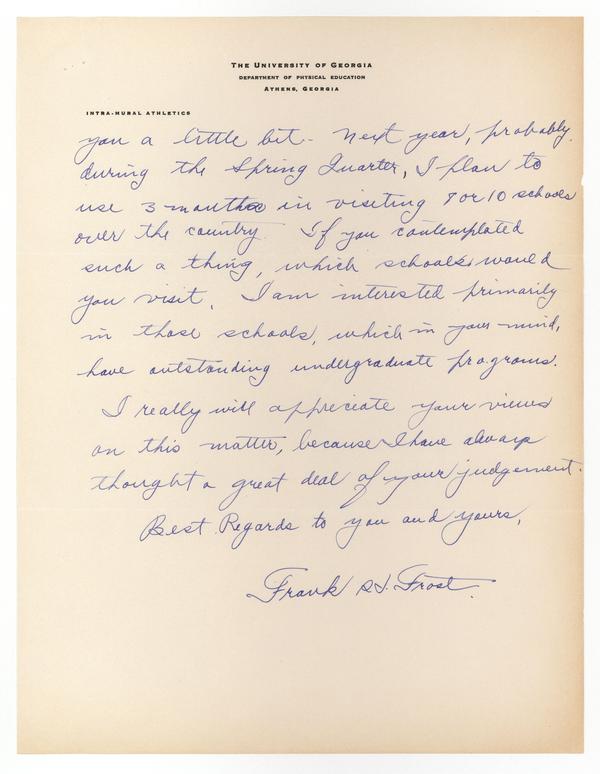 THE UNIVERSITY OF GEORGIA
DEPARTMENT OF PHYSICAL EDUCATION
ATHENS, GEORGIA
INTRA-MURAL ATHLETICS
you a little bit. Next year, probably
during the Spring Quarter, I plan to
use 3 months in visiting 9 or 10 schools
over the country. If you contemplated
such a thing, which schools would
you visit. I am interested primarily
in those schools, which in your mind,
have outstanding undergraduate programs.
I really will appreciate your views
on this matter, because I have always
thought a great deal of your judgement.
Best Regards to you and yours,
Frank Frost.